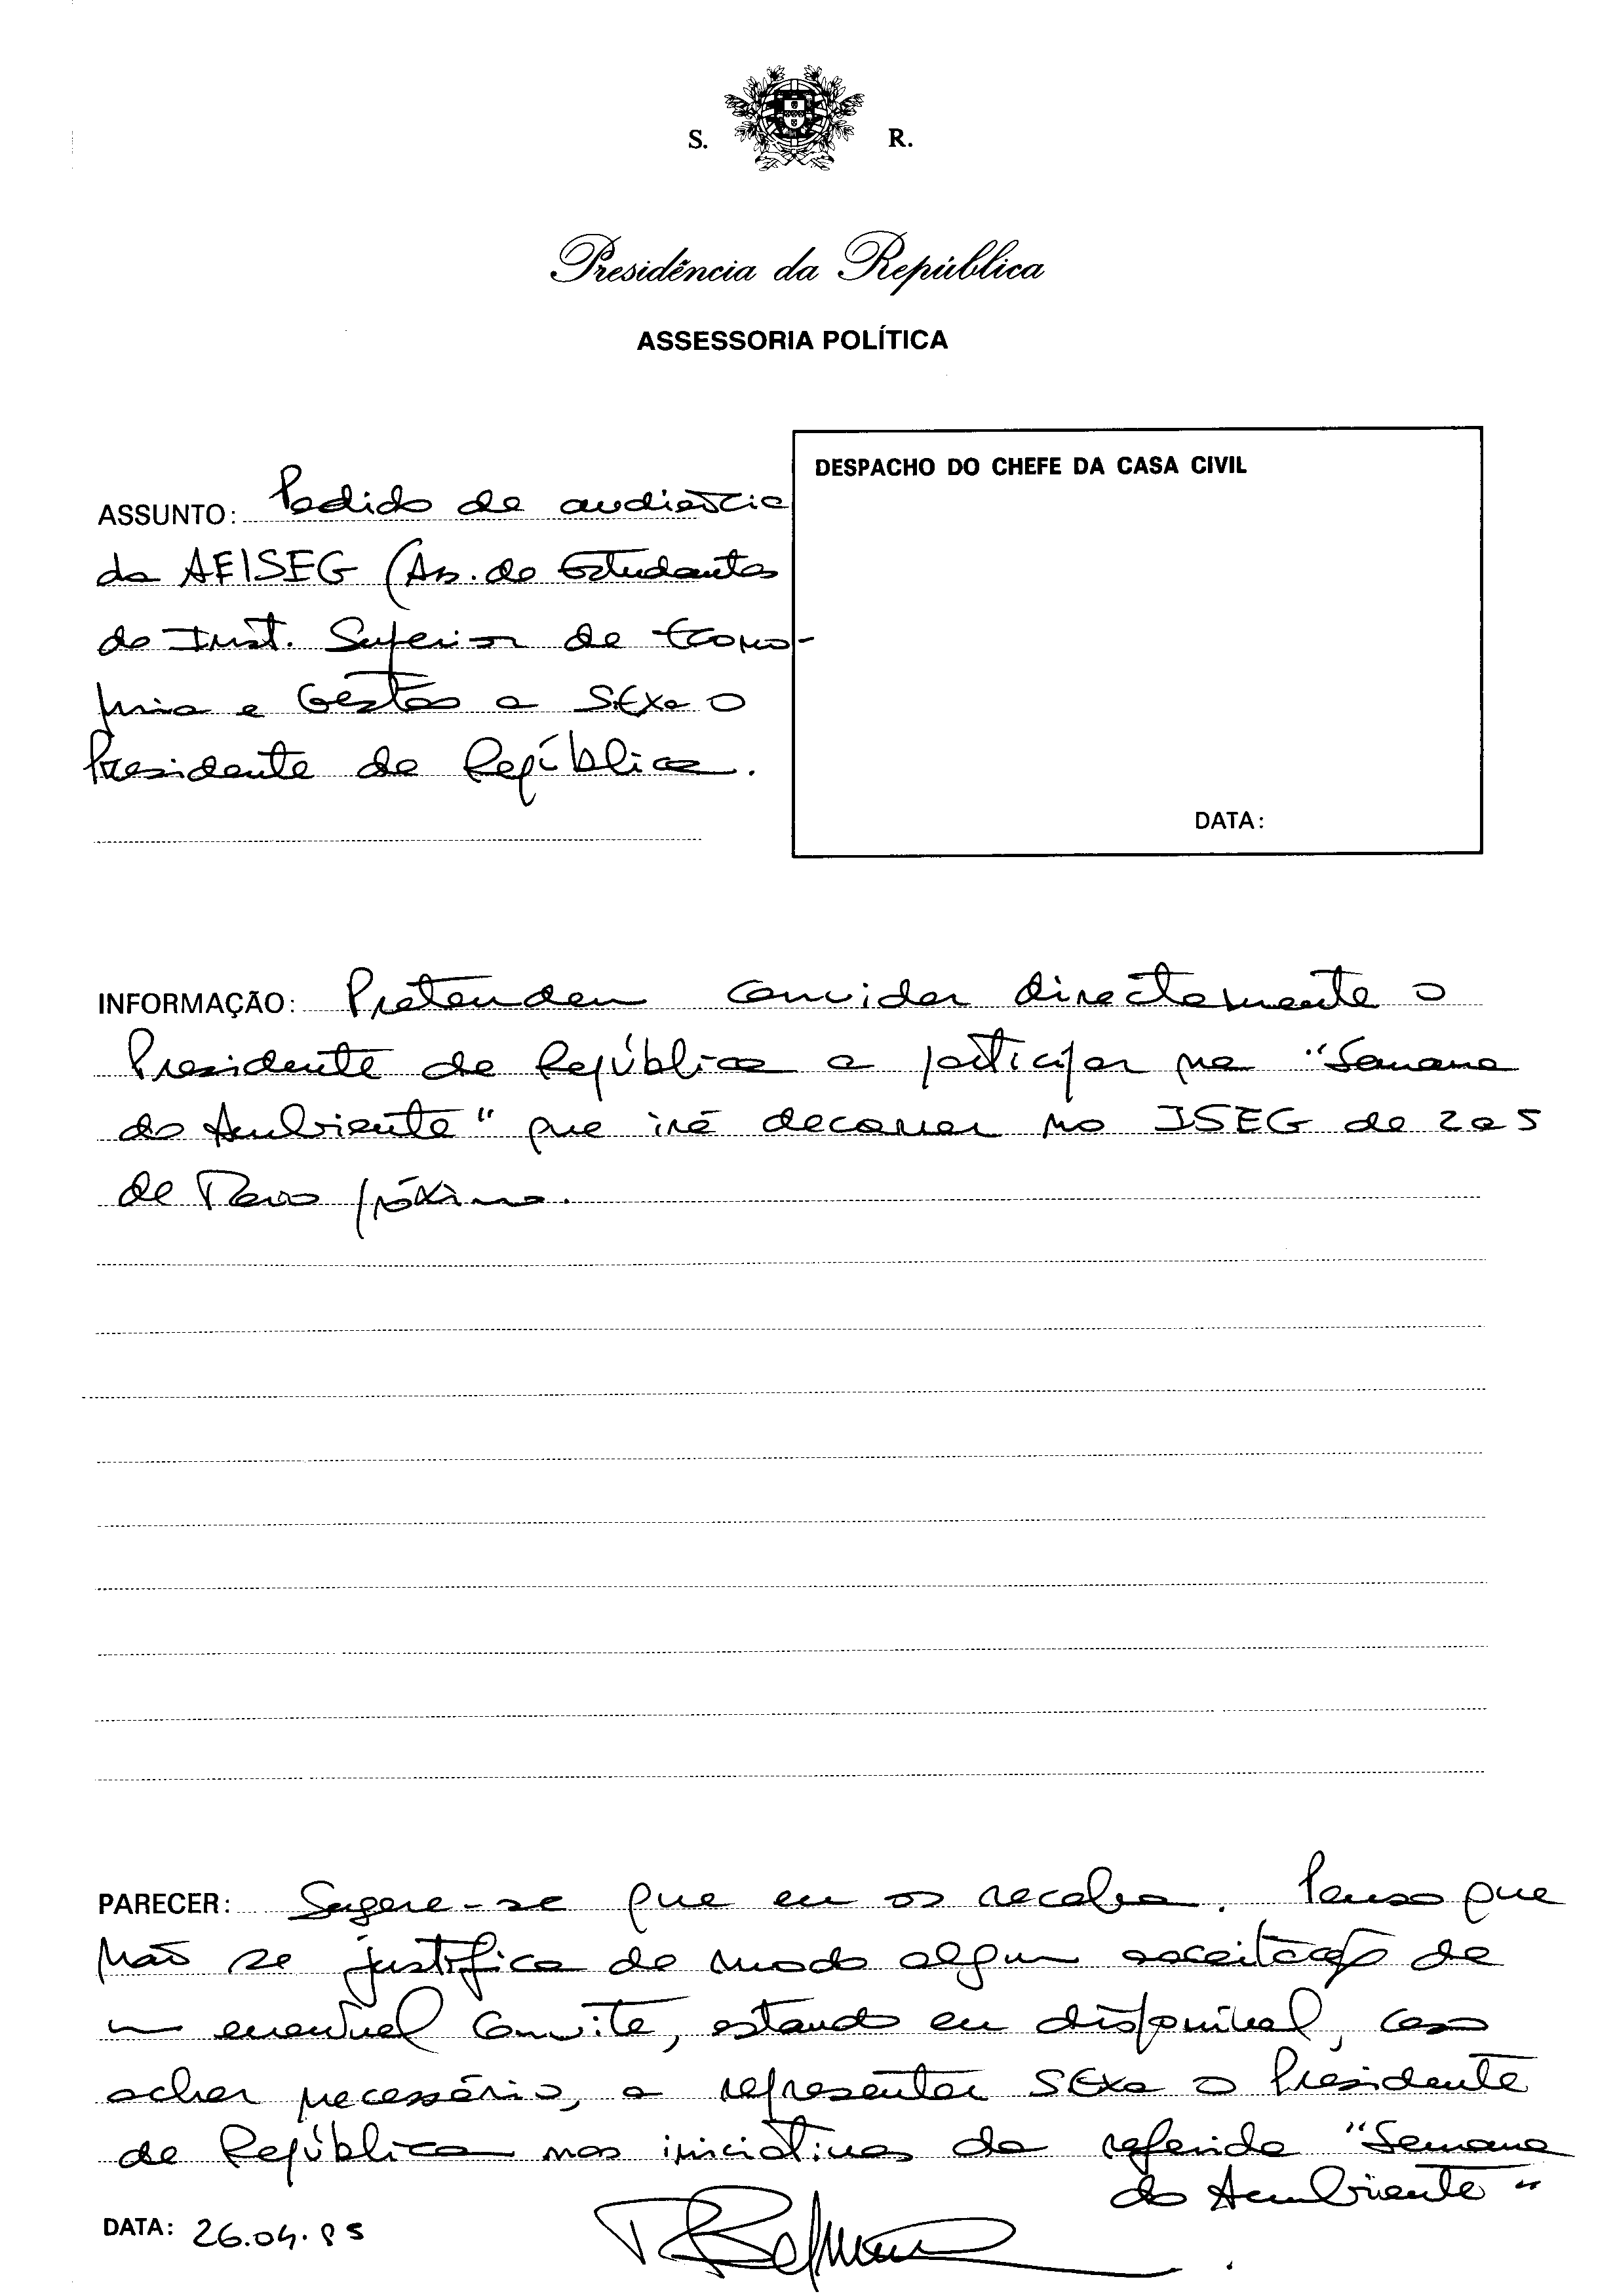 S. R.
Presidência da República
ASSESSORIA POLÍTICA
DESPACHO DO CHEFE DA CASA CIVIL
DATA:
ASSUNTO: Pedido de audiência
da AEISEG (As. de Estudantes
do Inst. Superior de Econo-
mia e Gestão a SEXa O
Presidente da República.
INFORMAÇÃO: Pretendem convidar directamente o
Presidente da República a participar na "Semana
do Ambiente" que irá decorrer no ISEG de 2 a 5
de Maio próximo.
PARECER: Sugere-se que eu os receba. Penso que
não se justifica de modo algum aceitação de
um eventual convite, estando eu disponível, caso
achar necessário, a representar SEXa o Presidente
da República nas iniciativas da referida "Semana
do Ambiente"
DATA: 26.04.95